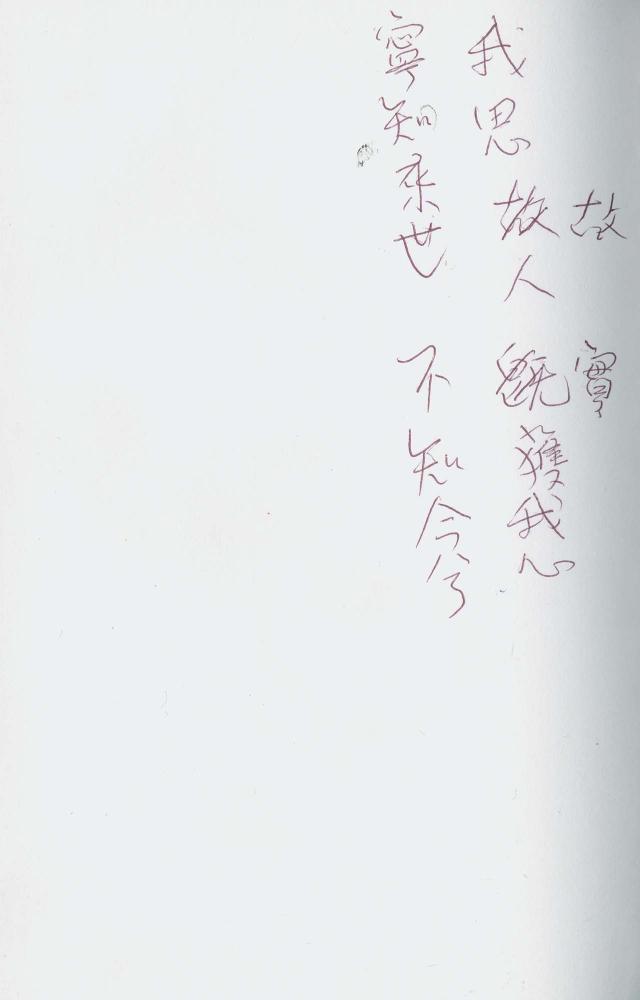 故　實
我思故人　既獲我心
寧知來世　不知今兮